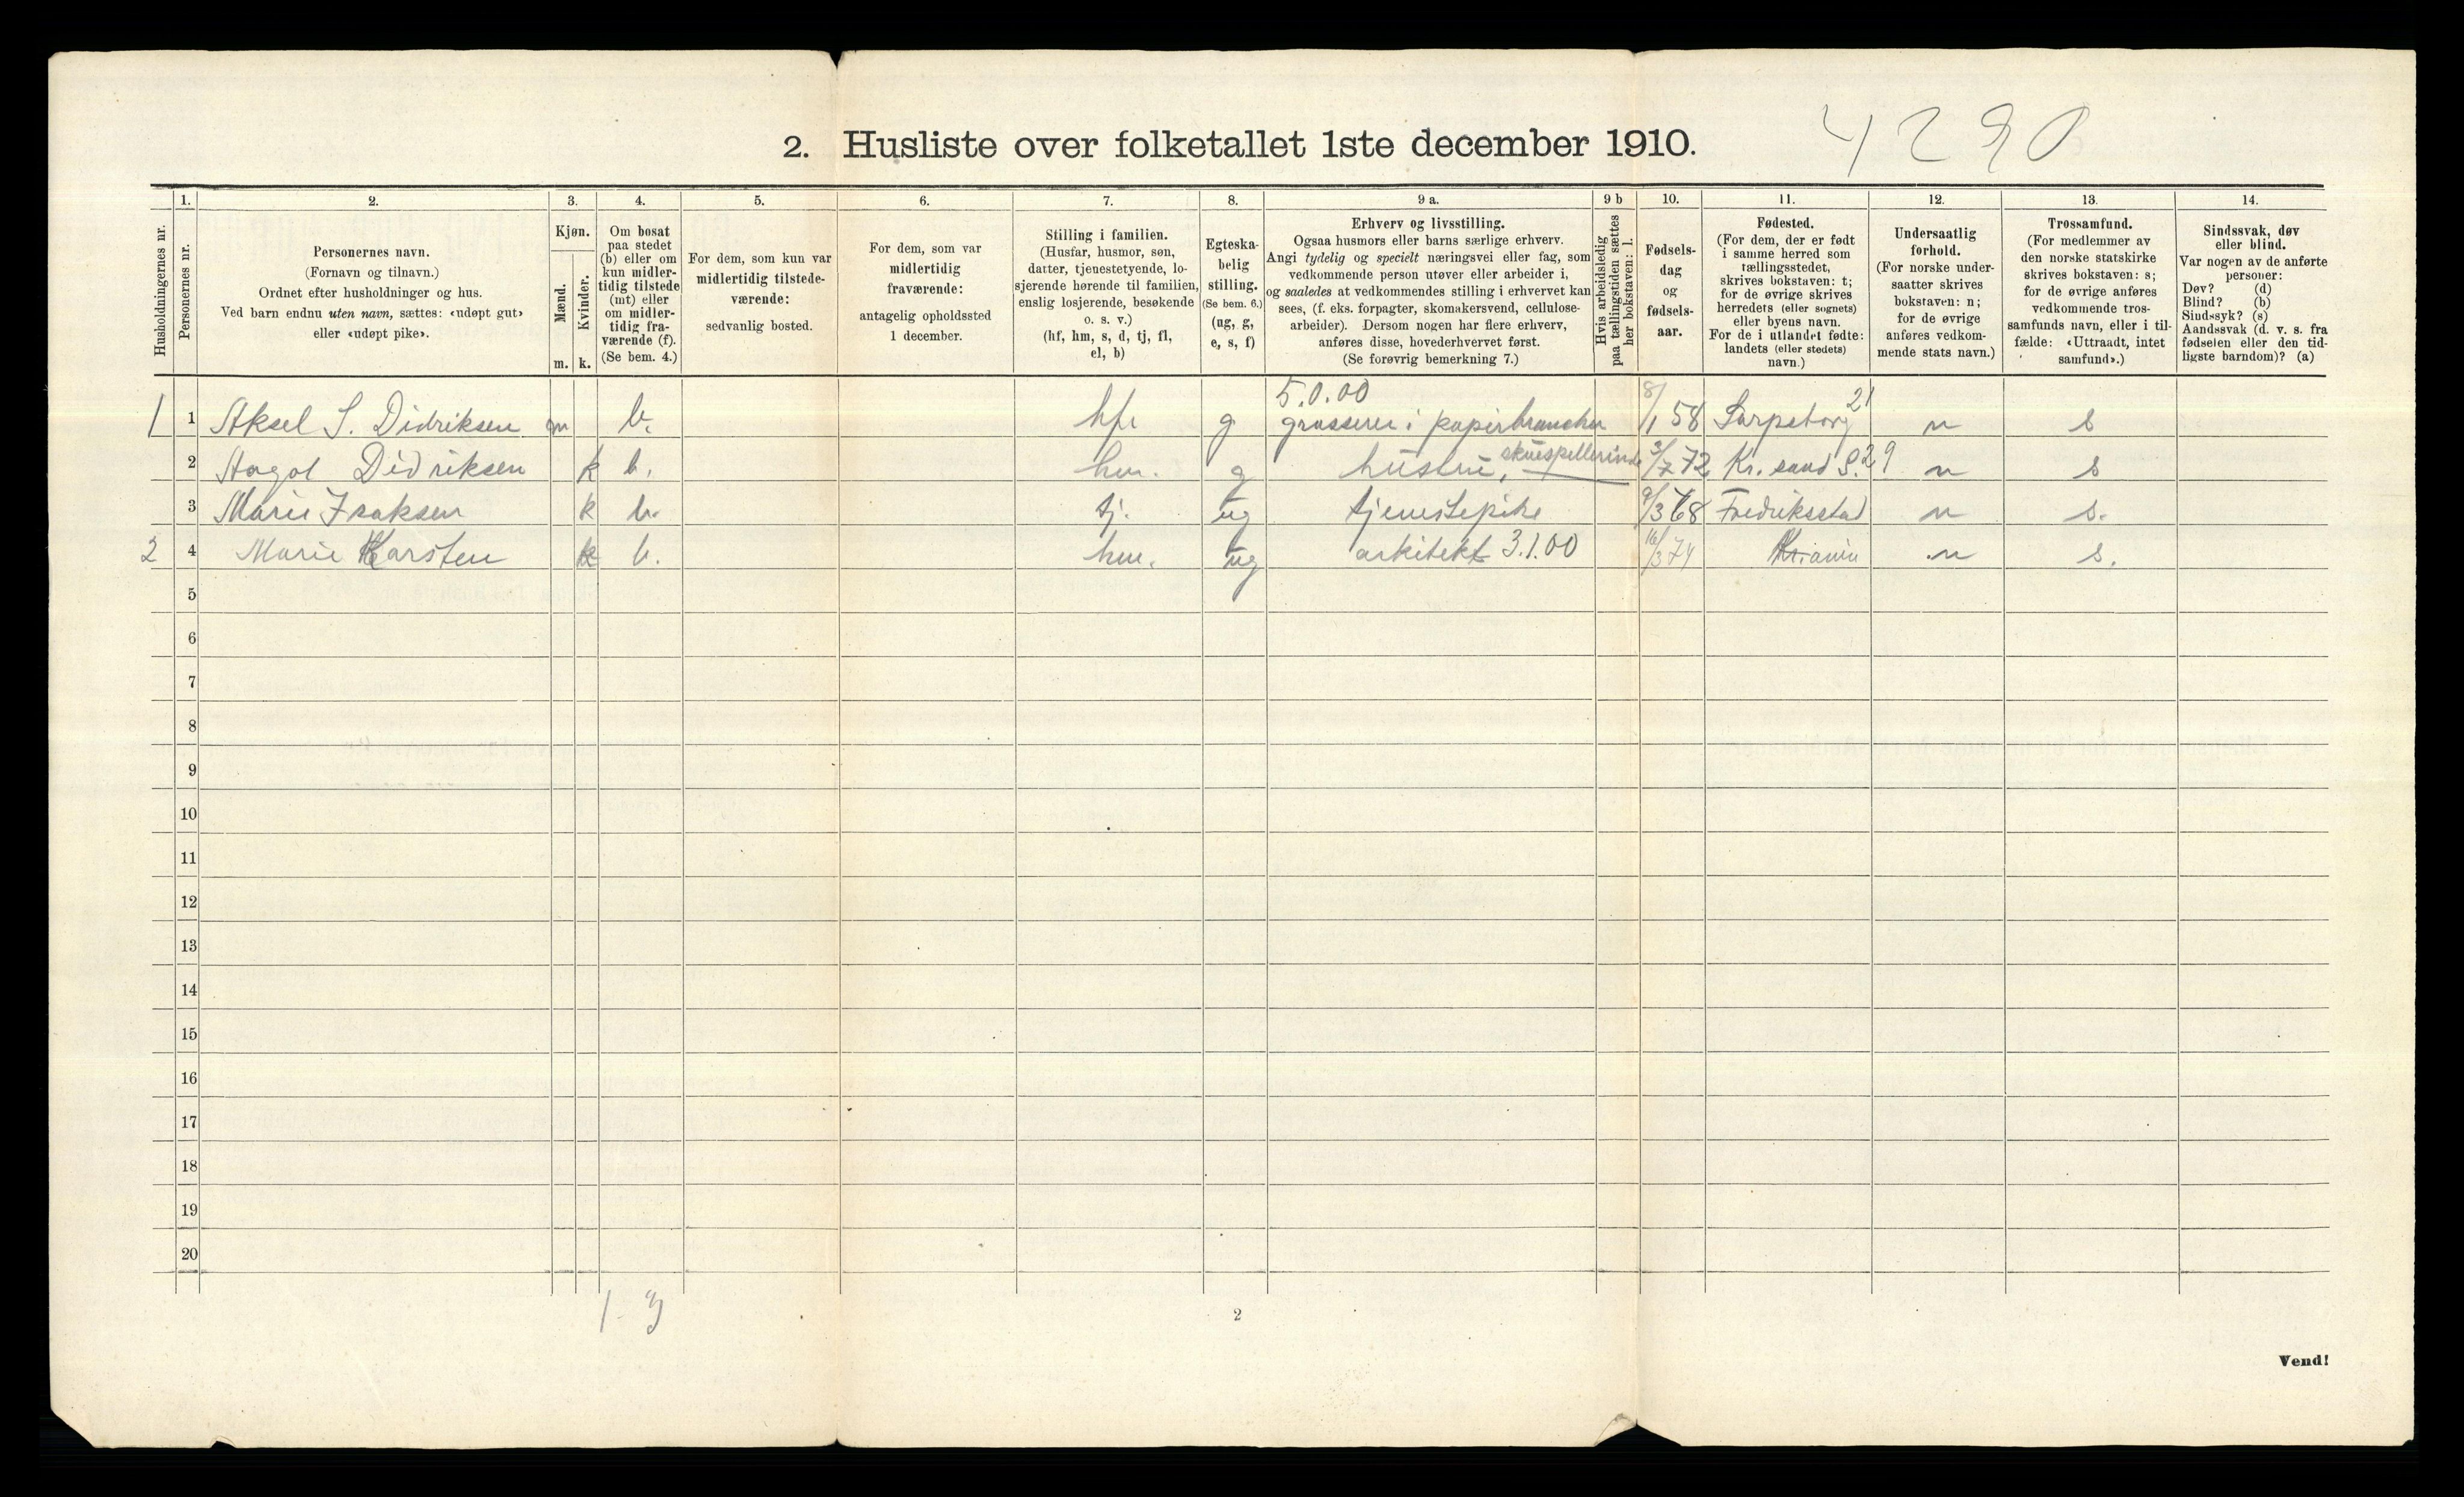 4290
2. Husliste over folketallet 1ste december 1910.
1. 2. 3. 4. 5. 6. 7. 8. 9 a. 9 b 10. 11. 12. 13. 14.
Husholdningernes nr.
Personernes nr.
Personernes navn.
(Fornavn og tilnavn.)
Ordnet efter husholdninger og hus.
Ved barn endnu uten navn, sættes: «udøpt gut»
eller «udøpt pike».
Kjøn.
Mænd.
Kvinder.
m. k.
Om bosat
paa stedet
(b) eller om
kun midler-
tidig tilstede
(mt) eller
om midler-
tidig fra-
værende (f).
(Se bem. 4.)
For dem, som kun var
midlertidig tilstede-
værende:
sedvanlig bosted.
For dem, som var
midlertidig
fraværende:
antagelig opholdssted
1 december.
Stilling i familien.
(Husfar, husmor, søn,
datter, tjenestetyende, lo-
sjerende hørende til familien,
enslig losjerende, besøkende
o. s. v.)
(hf, hm, s, d, tj, fl,
el, b)
Egteska-
belig
stilling.
(Se bem. 6.)
(ug, g,
e, s, f)
Erhverv og livsstilling.
Ogsaa husmors eller barns særlige erhverv.
Angi tydelig og specielt næringsvei eller fag, som
vedkommende person utøver eller arbeider i,
og saaledes at vedkommendes stilling i erhvervet kan
sees, (f. eks. forpagter, skomakersvend, cellulose-
arbeider). Dersom nogen har flere erhverv,
anføres disse, hovederhvervet først.
(Se forøvrig bemerkning 7.)
Hvis arbeidsledig
paa tællingstiden sættes
her bokstaven: l.
Fødsels-
dag
og
fødsels-
aar.
Fødested.
(For dem, der er født
i samme herred som
tællingsstedet,
skrives bokstaven: t;
for de øvrige skrives
herredets (eller sognets)
eller byens navn.
For de i utlandet fødte:
landets (eller stedets)
navn.)
Undersaatlig
forhold.
(For norske under-
saatter skrives
bokstaven: n;
for de øvrige
anføres vedkom-
mende stats navn.)
Trossamfund.
(For medlemmer av
den norske statskirke
skrives bokstaven: s;
for de øvrige anføres
vedkommende tros-
samfunds navn, eller i til-
fælde: «Uttraadt, intet
samfund».)
Sindssvak, døv
eller blind.
Var nogen av de anførte
personer:
Døv? (d)
Blind? (b)
Sindssyk? (s)
Aandssvak (d. v. s. fra
fødselen eller den tid-
ligste barndom)? (a)
5.0.00
1 1 Aksel S. Didriksen m b. hfr g grosserer i papirbranchen 8/1 58 Sarpsborg 21 n s
2 Aagot Didriksen k b. hm. g hustru, skuespillerinde 3/7 72 Kr. sand S. 29 n s
3 Marie Isaksen k b. tj. ug tjenestepike 9/3 68 Fredriksstad n s.
2 4 Marie Karsten k b. hm. ug arkitekt 3.1.00 16/3 74 Kr.ania n s.
5
6
7
8
9
10
11
12
13
14
15
16
17
18
19
20
1 - 3
2
Vend!